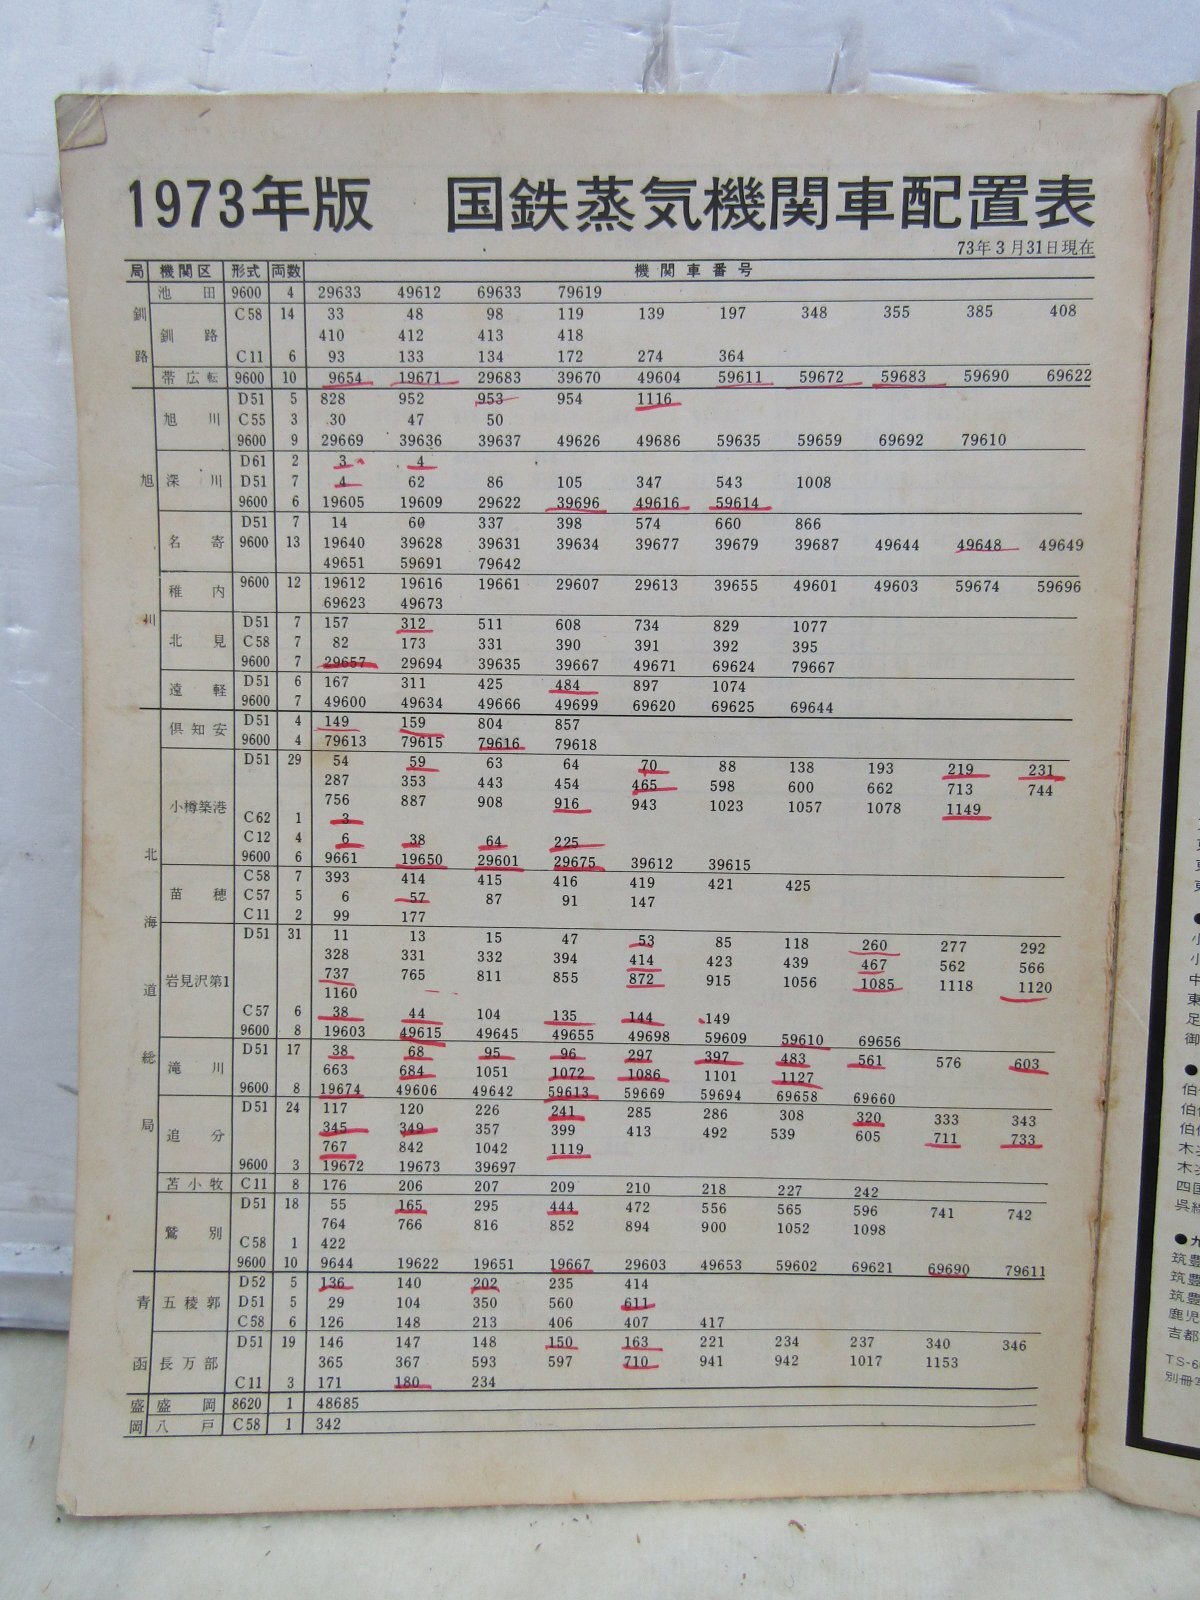 1973年版 国鉄蒸気機関車配置表
73年3月31日現在
局 機関区 形式 両数 機関車番号
釧路 池田 9600 4 29633 49612 69633 79619
釧路 C58 14 33 48 98 119 139 197 348 355 385 408
410 412 413 418
C11 6 93 133 134 172 274 364
帯広転 9600 10 9654 19671 29683 39670 49604 59611 59672 59683 59690 69622
旭川 旭川 D51 5 828 952 953 954 1116
C55 3 30 47 50
9600 9 29669 39636 39637 49626 49686 59635 59659 69692 79610
深川 D61 2 3 4
D51 7 4 62 86 105 347 543 1008
9600 6 19605 19609 29622 39696 49616 59614
名寄 D51 7 14 60 337 398 574 660 866
9600 13 19640 39628 39631 39634 39677 39679 39687 49644 49648 49649
49651 59691 79642
稚内 9600 12 19612 19616 19661 29607 29613 39655 49601 49603 59674 59696
69623 49673
北見 D51 7 157 312 511 608 734 829 1077
C58 7 82 173 331 390 391 392 395
9600 7 29657 29694 39635 39667 49671 69624 79667
遠軽 D51 6 167 311 425 484 897 1074
9600 7 49600 49634 49666 49699 69620 69625 69644
北海道総局 倶知安 D51 4 149 159 804 857
9600 4 79613 79615 79616 79618
小樽築港 D51 29 54 59 63 64 70 88 138 193 219 231
287 353 443 454 465 598 600 662 713 744
756 887 908 916 943 1023 1057 1078 1149
C62 1 3
C12 4 6 38 64 225
9600 6 9661 19650 29601 29675 39612 39615
苗穂 C58 7 393 414 415 416 419 421 425
C57 5 6 57 87 91 147
C11 2 99 177
岩見沢第1 D51 31 11 13 15 47 53 85 118 260 277 292
328 331 332 394 414 423 439 467 562 566
737 765 811 855 872 915 1056 1085 1118 1120
1160
C57 6 38 44 104 135 144 149
9600 8 19603 49615 49645 49655 49698 59609 59610 69656
滝川 D51 17 38 68 95 96 297 397 483 561 576 603
663 684 1051 1072 1086 1101 1127
9600 8 19674 49606 49642 59613 59669 59694 69658 69660
追分 D51 24 117 120 226 241 285 286 308 320 333 343
345 349 357 399 413 492 539 605 711 733
767 842 1042 1119
9600 3 19672 19673 39697
苫小牧 C11 8 176 206 207 209 210 218 227 242
鷲別 D51 18 55 165 295 444 472 556 565 596 741 742
764 766 816 852 894 900 1052 1098
C58 1 422
9600 10 9644 19622 19651 19667 29603 49653 59602 69621 69690 79611
青函 五稜郭 D52 5 136 140 202 235 414
D51 5 29 104 350 560 611
C58 6 126 148 213 406 407 417
長万部 D51 19 146 147 148 150 163 221 234 237 340 346
365 367 593 597 710 941 942 1017 1153
C11 3 171 180 234
盛岡 盛岡 8620 1 48685
八戸 C58 1 342
小
小
中
東
足
御
伯
伯
伯
木
木
四国
呉線
●九
筑豊
筑豊
筑豊
鹿児
吉都
TS-6
別冊